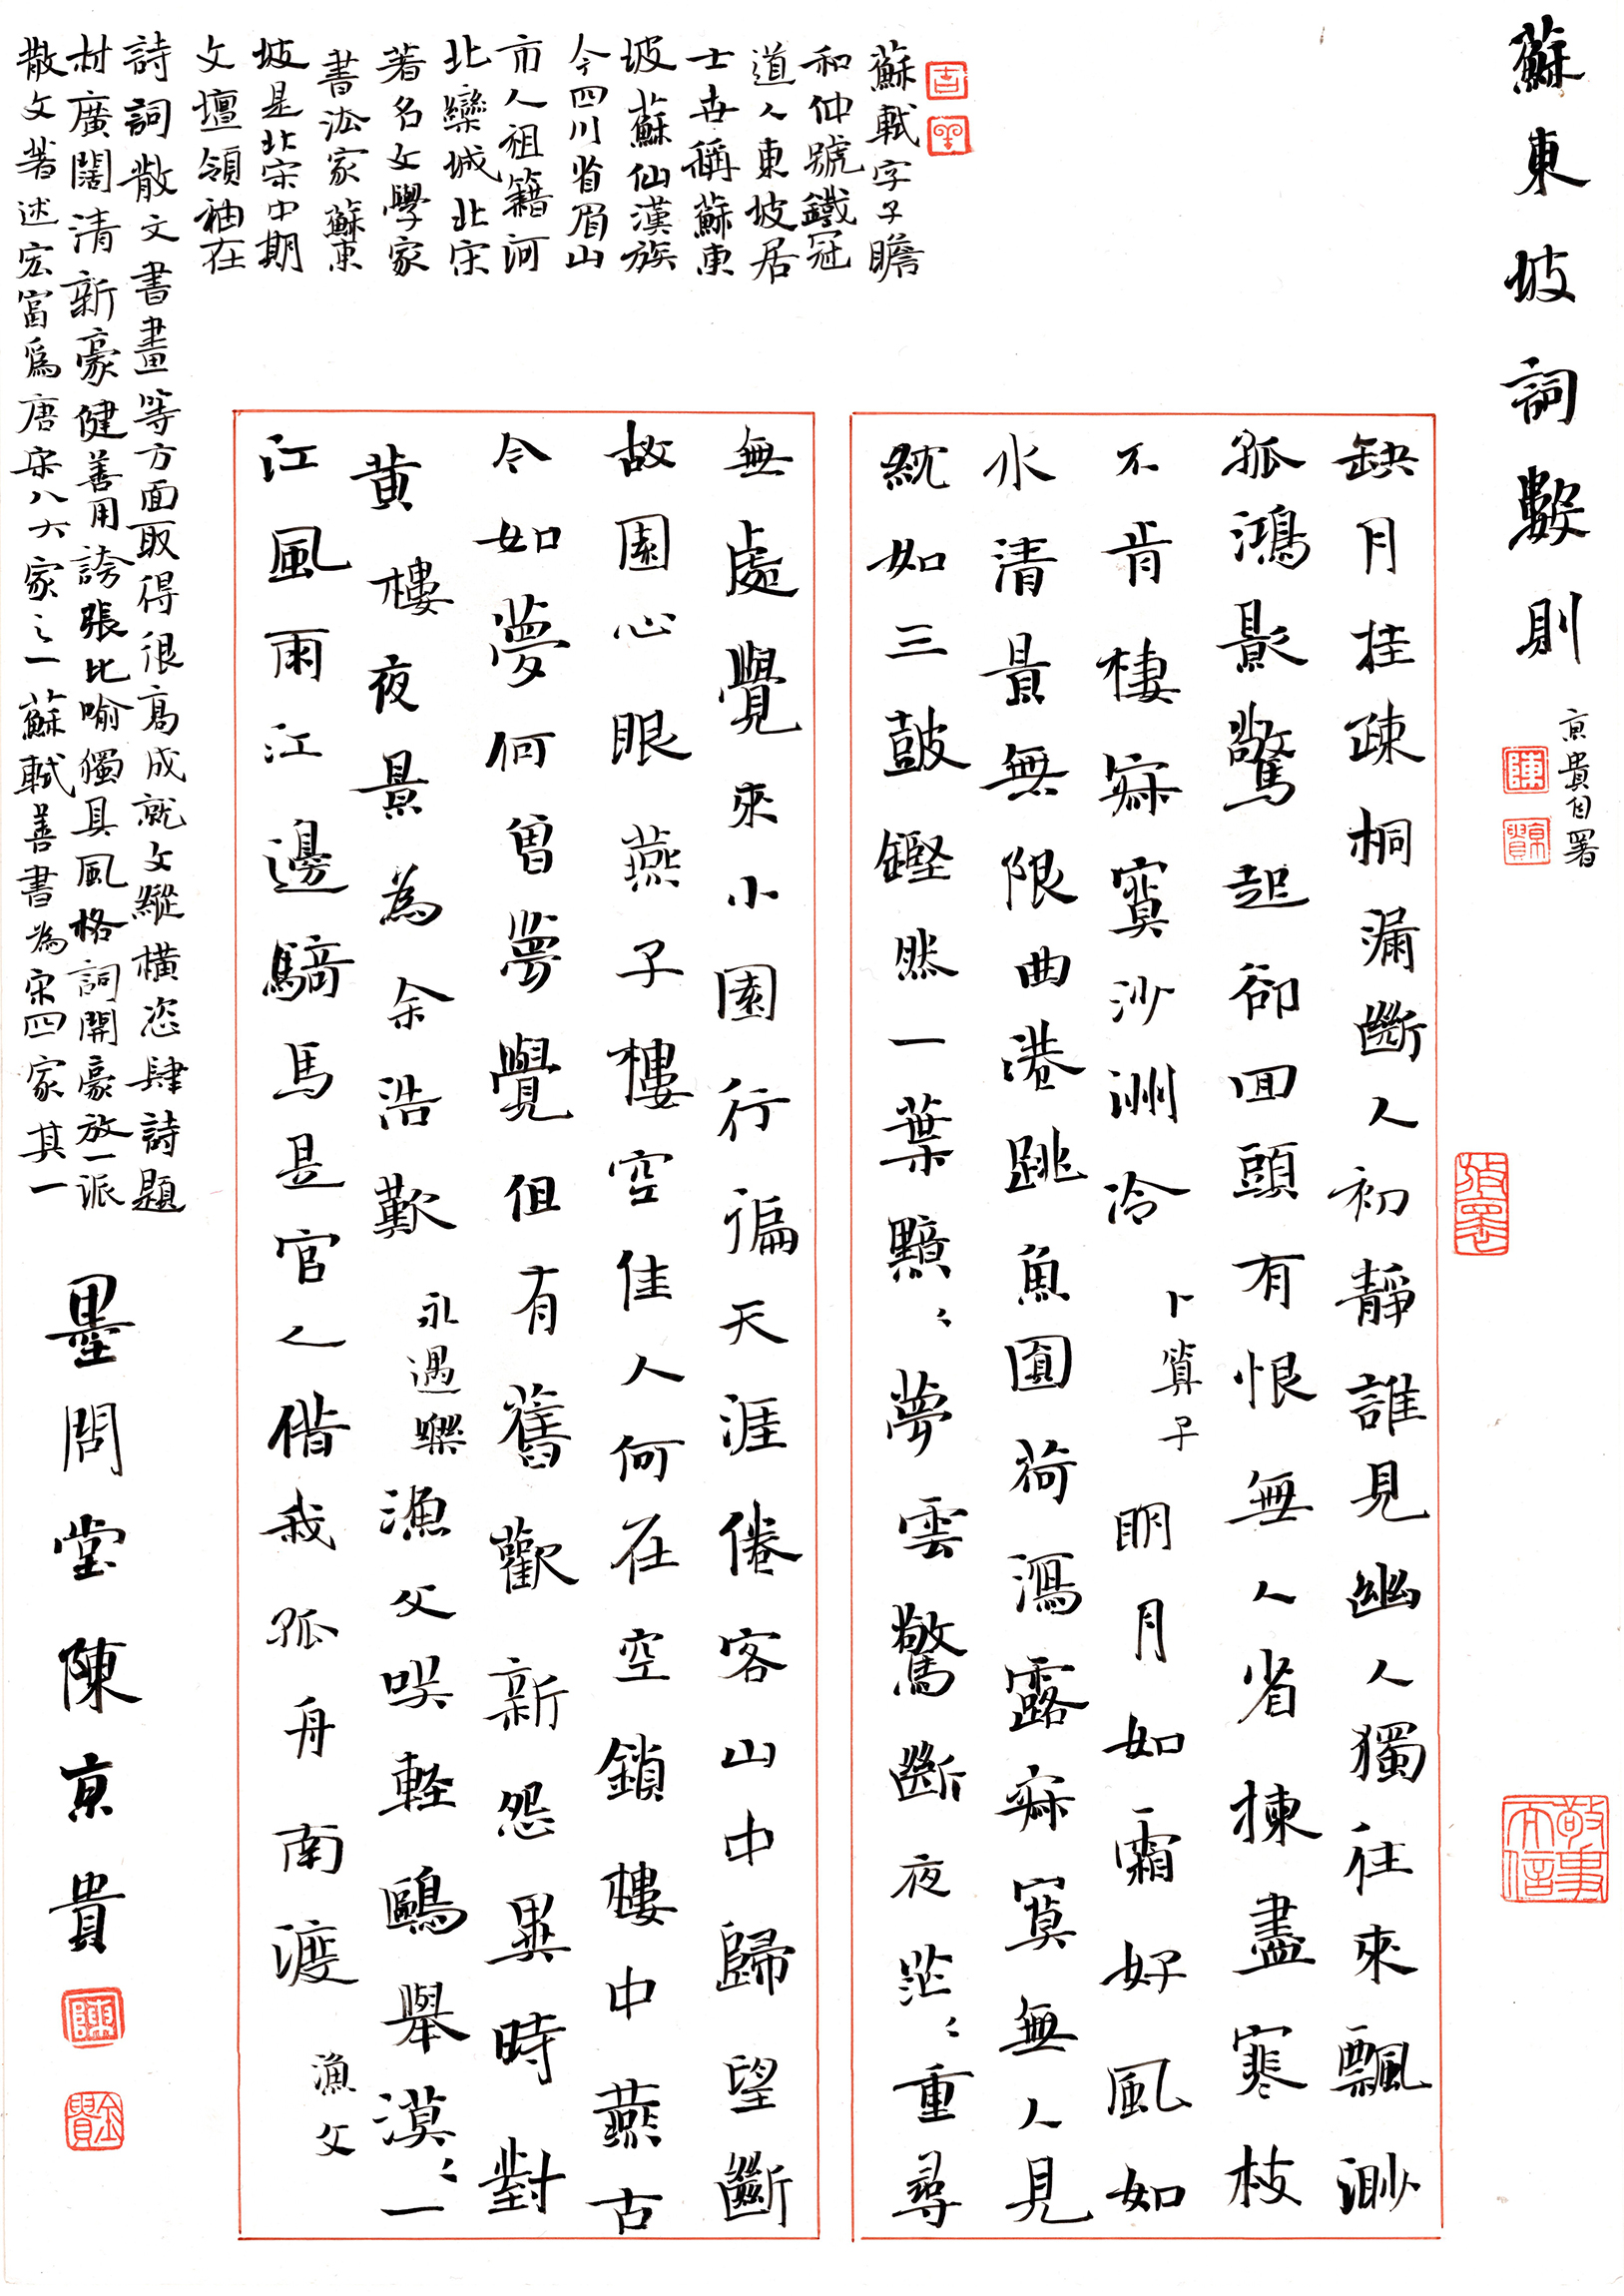 蘇東坡詞數則
京貴自署
缺月挂疎桐漏斷人初靜誰見幽人獨往來飄渺
孤鴻影驚起卻回頭有恨無人省揀盡寒枝
不肯棲寂寞沙洲冷 卜算子 明月如霜好風如
水清景無限曲港跳魚圓荷瀉露寂寞無人見
紞如三鼓鏗然一葉黯〻夢雲驚斷夜茫〻重尋
無處覺來小園行徧天涯倦客山中歸望斷
故園心眼燕子樓空佳人何在空鎖樓中燕古
今如夢何曾夢覺但有舊歡新怨異時對
黄樓夜景為余浩歎 永遇樂 漁父咲輕鷗舉漠〻一
江風雨江邊騎馬是官人借我孤舟南渡 漁父
蘇軾字子瞻
和仲號鐵冠
道人東坡居
士世稱蘇東
坡蘇仙漢族
今四川省眉山
市人祖籍河
北欒城北宋
著名文學家
書法家蘇東
坡是北宋中期
文壇領袖在
詩詞散文書畫等方面取得很高成就文縱橫恣肆詩題
材廣闊清新豪健善用誇張比喻獨具風格詞開豪放一派
散文著述宏富爲唐宋八大家之一蘇軾善書為宋四家其一
墨問堂陳京貴